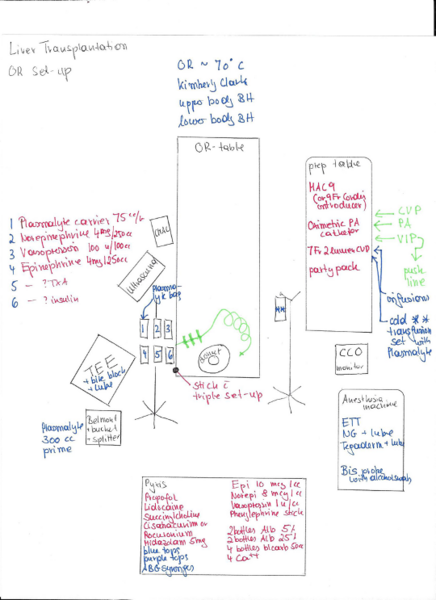 Liver Transplantation
OR set-up
OR ~ 70° C
Kimberly Clark
upper body BH
lower body BH
OR-table
1 Plasmalyte carrier 75 cc/h
2 Norepinephrine 4mg/250cc
3 Vasopressin 100 u/100cc
4 Epinephrine 4mg/250cc
5 - ? TXA
6 - ? insulin
Ultrasound
plasmalyte bag
1 2 3
4 5 6
TEE
+ bite block
+ lube
Plasmalyte
300 cc
prime
Belmont
+ bucket
+ splitter
stick c̄
triple set-up
prep table
MAC 9
(or 9Fr Cordis
introducer)
Oximetric PA
catheter
7Fr 2 lumen CVP
party pack
CVP
PA
VIP
push
line
infusions
cold **
transfusion
set with
Plasmalyte
CCO
monitor
Anesthesia
machine
ETT
NG + lube
Tegaderm + lube
Bis probe
with alcohol swab
Pyxis
Propofol
Lidocaine
Succinylcholine
Cisatracurium or
Rocuronium
Midazolam 5mg
blue tops
purple tops
ABG syringes
Epi 10 mcg/cc
Norepi 8 mcg/cc
Vasopressin 1 u/cc
Phenylephrine stick
2 bottles Alb 5%
2 bottles Alb 25%
4 bottles bicarb 50cc
4 Ca++